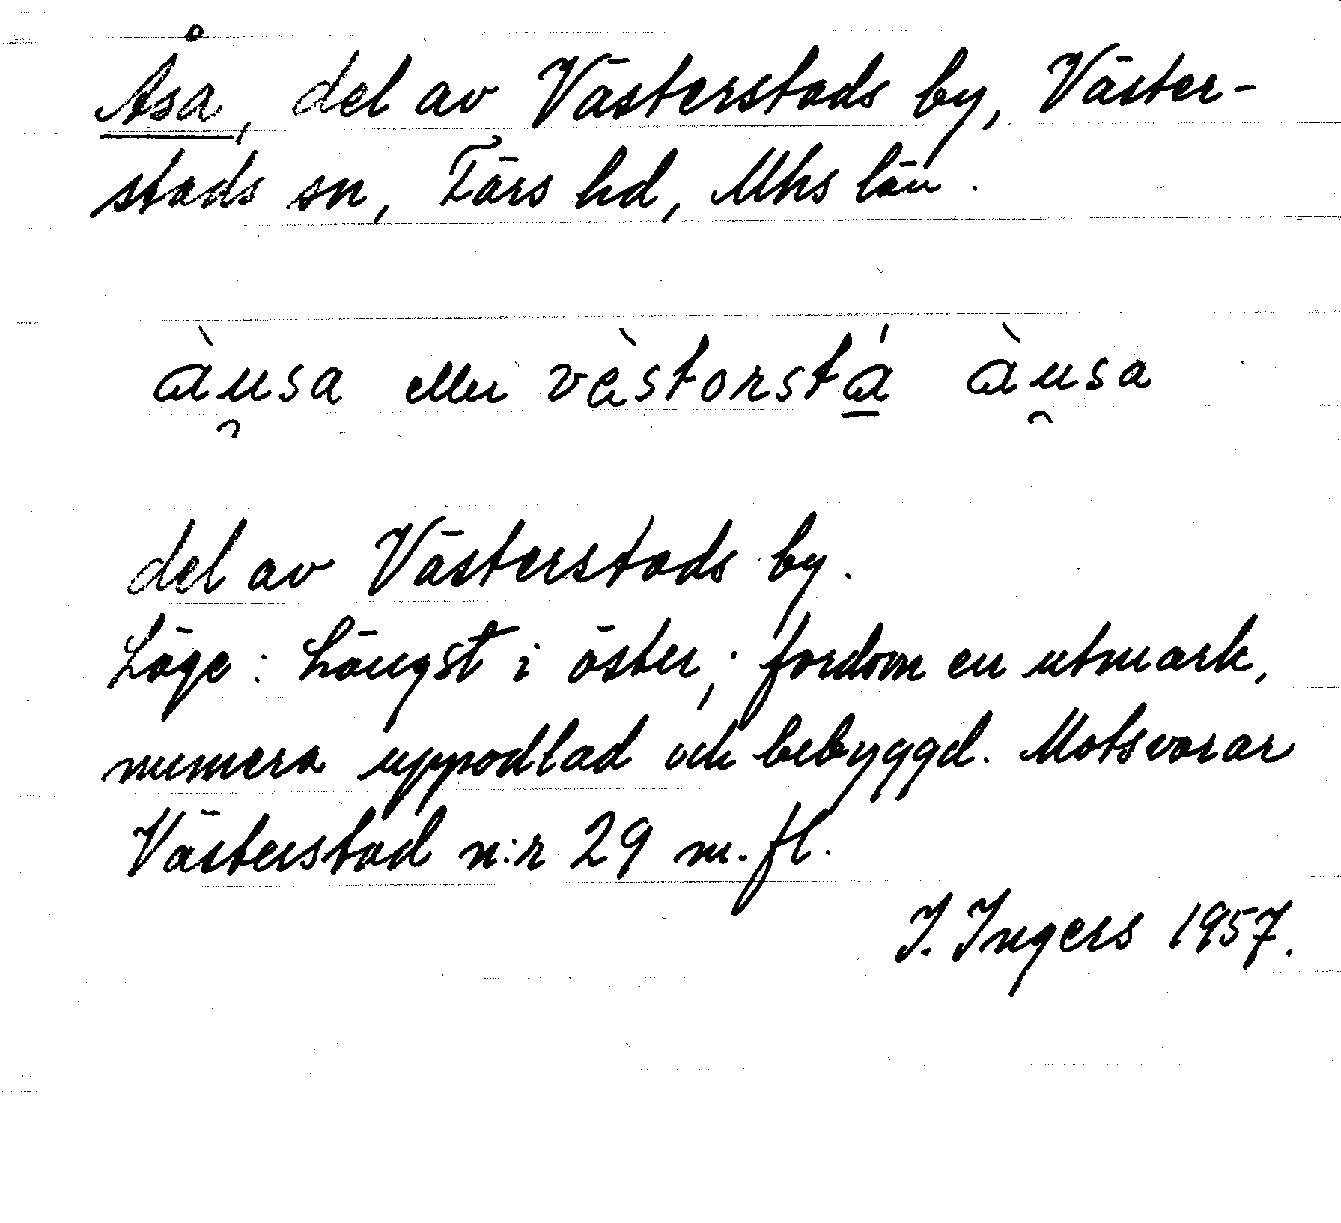 Åsa, del av Västerstads by, Väster-
stads sn, Färs hd, Mhs län.
àu̯sa eller vèstorstá̲ àu̯sa
del av Västerstads by.
Läge: Längst i öster; fordom en utmark,
numera uppodlad och bebyggd. Motsvarar
Västerstad n:r 29 m.fl.
I. Ingers 1957.